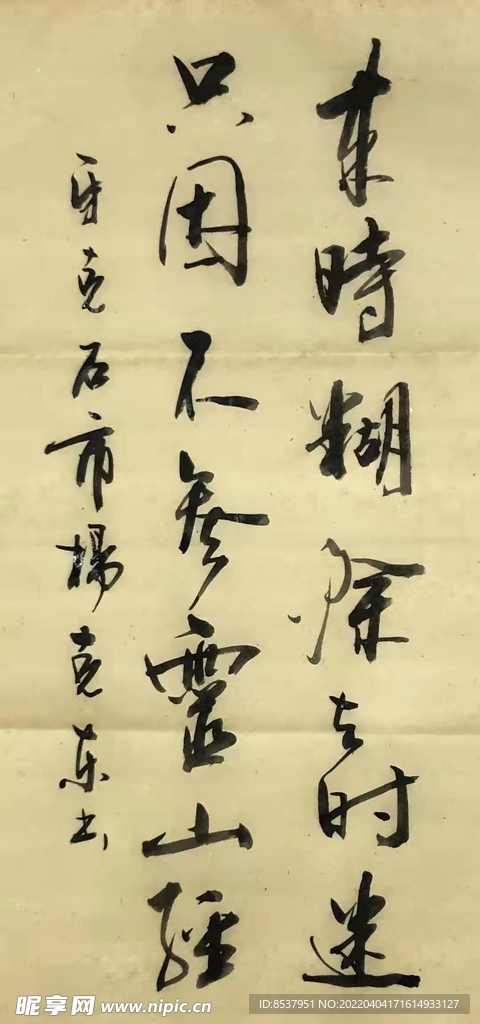 来時糊涂去时迷
只因不参靈山經
牙克石市楊克东书
昵享网 www.nipic.cn
ID:8537951 NO:20220404171614933127